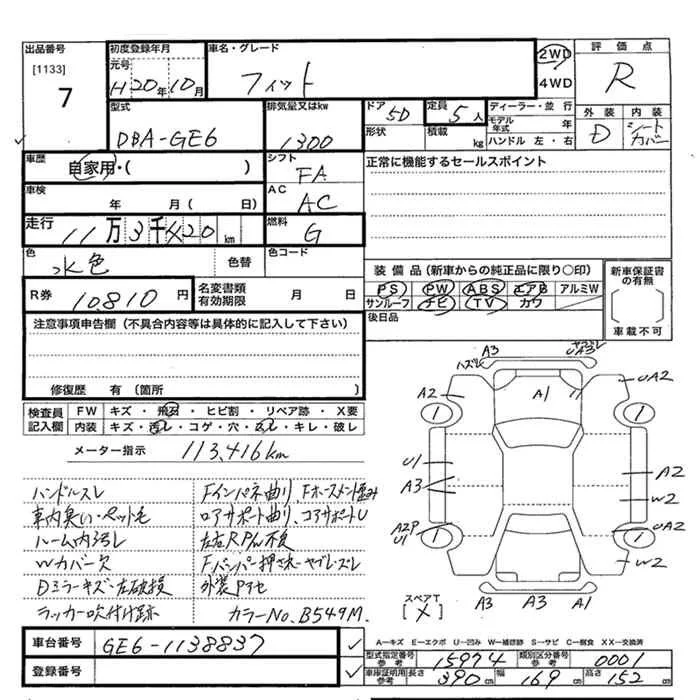 出品番号
[1133]
7
初度登録年月
元号
H20年10月
車名・グレード
フィット
2WD
4WD
評価点
R
外装
内装
D
シートカバー
型式
DBA-GE6
排気量又はkw
1300
ドア
5D
形状
定員
5人
積載
kg
ディーラー・並行
モデル年式
年
ハンドル 左・右
車歴
自家用・( )
シフト
FA
正常に機能するセールスポイント
車検
年 月( 日)
AC
AC
走行
11万3千420km
燃料
G
色
水色
色替
色コード
装備品(新車からの純正品に限り○印)
PS PW ABS エアB アルミW
サンルーフ ナビ TV カワ
新車保証書の有無
車載不可
R券
10,810円
名変書類有効期限
月 日
後日品
注意事項申告欄(不具合内容等は具体的に記入して下さい)
修復歴 有(箇所 )
検査員記入欄
FW キズ・飛石・ヒビ割・リペア跡・X要
内装 キズ・汚レ・コゲ・穴・ハガレ・キレ・破レ
メーター指示
113,416km
ハンドルスレ
車内臭い・ペット毛
ルーム内汚レ
Wカバー欠
Dミラーキズ・左破損
ラッカー吹付け跡
Fインパネ曲り、
ロアサポート曲り、コアサポートU
外装Pタセ
カラーNo. B549M.
ハズレ
A3
UA3
A1
A2
UA2
1
1
U1
A3
A2
W2
A2P
U1
UA2
1
1
W2
A3
A3
A1
スペアT
[メ]
A-キズ E-エクボ U-凹み W-補修跡 S-サビ C-腐食 XX-交換済
車台番号
GE6-1138837
登録番号
型式指定番号 参考
15974
類別区分番号 参考
0001
車庫証明用 参考
長さ 390cm 幅 169cm 高さ 152cm